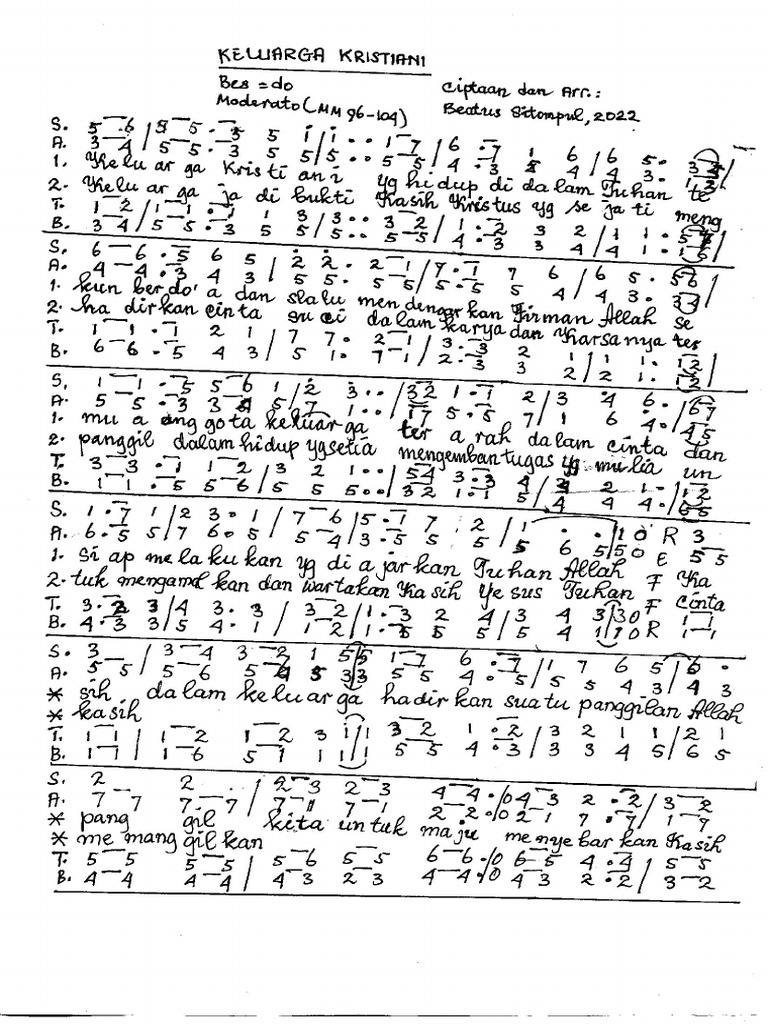 KELUARGA KRISTIANI
Bes = do
Ciptaan dan Arr.:
Moderato (MM 96-104)
Beatus Sitompul, 2022
S. 5 6 / 5 5 . 5 5 1 / 1 . . 1 7 / 6 . 7 1 6 / 6 5 .
A. 3 4 / 5 5 . 3 5 5 / 5 . . 5 5 / 4 . 3 4 / 4 3 .
1. Kelu ar ga Kristi ani yg hidup di dalam Tuhan te
2. Kelu ar ga ja di bukti Kasih Kristus yg se ja ti meng
T. 1 2 / 1 1 . 1 1 3 / 3 . . 3 2 / 1 . 2 3 2 / 1 1 .
B. 3 4 / 5 5 . 3 5 5 / 5 . . 5 5 / 4 . 3 3 4 / 4 1 .
S. 6 6 . 5 6 5 / 2 2 . 2 1 / 7 . 1 7 6 / 6 5 . 5 6
A. 4 4 . 3 4 3 / 5 5 . 5 5 / 5 . 5 5 4 / 4 3 . 3 4
1. kun ber do'a dan slalu men dengarkan Firman Allah se
2. ha dirkan cinta su ci dalam karya dan Karsanya ter
T. 1 1 . 1 2 1 / 7 7 . 2 1 / 3 . 3 2 1 / 1 1 . 1 2
B. 6 6 . 5 4 3 / 5 1 . 7 1 / 2 . 3 3 2 / 2 1 . 1 2
S. 1 1 . 5 5 6 1 / 2 3 . . / 3 2 1 . 1 2 / 3 4 6 . / 6 7
A. 5 5 . 3 3 4 5 / 7 1 . . / 1 7 5 . 5 7 / 1 6 4 . / 4 5
1. mu a ang gota keluarga ter a rah dalam cinta dan
2. panggil dalam hidup yg setia mengemban tugas yg mulia un
T. 3 3 . 1 1 2 / 3 2 1 . . / 5 4 3 . 3 4 / 2 2 1 . / 1 2
B. 1 1 . 5 5 6 / 5 5 5 . . / 3 2 1 . 1 5 / 4 4 4 . / 5 5
S. 1 . 7 1 / 2 3 . 1 / 7 6 / 5 . 1 7 2 / 1 . . / 1 0 R 3
A. 6 . 5 5 / 7 6 . 5 / 5 4 / 3 . 5 5 5 / 5 6 5 / 5 0 E 5 5
1. Si ap me la ku kan yg di a jarkan Tuhan Allah F Ka
2. tuk mengamal kan dan wartakan Kasih Ye sus Tuhan F Cinta
T. 3 . 3 3 / 4 3 . 3 / 3 2 / 1 . 3 2 4 / 3 4 3 / 3 0 F 1 1
B. 4 . 3 3 / 5 4 . 1 / 1 2 / 1 . 5 5 5 / 5 4 1 / 1 0 R 1 1
S. 3 / 3 4 3 2 1 5 / 5 1 7 6 . 7 / 1 7 6 5 / 6 .
A. 5 5 / 5 6 5 4 5 3 / 3 5 5 4 . 5 / 5 5 4 3 / 4 3
* sih dalam keluarga hadirkan suatu panggilan Allah
* kasih
T. 1 1 / 1 2 1 2 3 1 / 1 3 2 1 . 2 / 3 2 1 1 / 2 1
B. 1 1 / 1 6 5 1 1 1 / 1 5 5 4 . 3 / 3 3 4 5 / 6 5
S. 2 2 . / 2 3 2 3 4 4 . / 0 4 3 2 . 2 / 3 2
A. 7 7 7 7 / 7 1 7 1 2 2 . 0 2 1 7 . 7 / 1 7
* pang gil kita untuk maju menyebar kan Kasih
* me mang gil kan
T. 5 5 5 5 / 5 6 5 5 6 6 . / 0 6 5 4 . 4 / 5 5
B. 4 4 4 4 / 4 3 2 3 4 4 . / 0 4 3 2 . 2 / 3 2